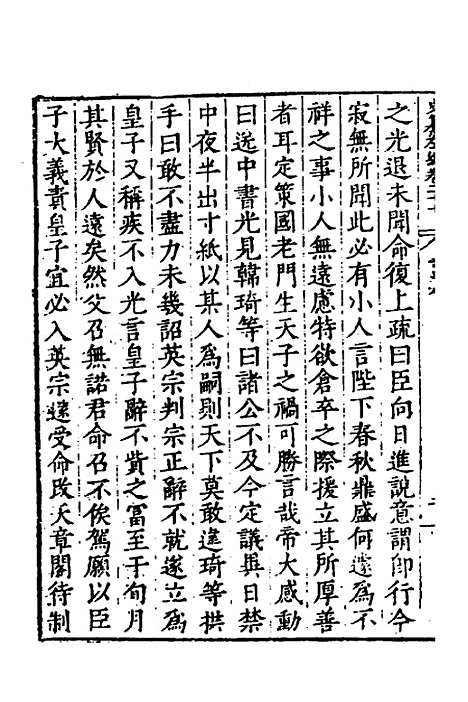 之光退未聞命復上疏曰臣向日進說意謂即行今
寂無所聞此必有小人言陛下春秋鼎盛何遽為不
祥之事小人無遠慮特欲倉卒之際援立其所厚善
者耳定策國老門生天子之禍可勝言哉帝大感動
曰送中書光見韓琦等曰諸公不及今定議異日禁
中夜半出寸紙以某人為嗣則天下莫敢違琦等拱
手曰敢不盡力未幾詔英宗判宗正辭不就遂立為
皇子又稱疾不入光言皇子辭不貲之富至于旬月
其賢於人遠矣然父召無諾君命召不俟駕願以臣
子大義責皇子宜必入英宗遂受命改天章閣待制